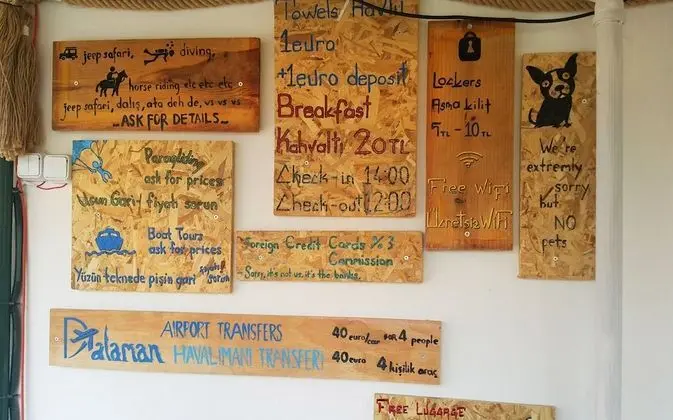 jeep safari, diving,
horse riding etc etc etc
jeep safari, dalış, ata deh de, vs vs vs
ASK FOR DETAILS
Towels Havlu
1euro
+1euro deposit
Breakfast
Kahvaltı 20TL
Check-in 14:00
Check-out 12:00
Lockers
Asma kilit
5TL - 10TL
Free WiFi
Ücretsiz WiFi
We're
extremly
sorry
but
NO
pets
Paragliding
ask for prices
Usun Gari - fiyatı sorun
Boat Tours
ask for prices
Yüzün teknede pişin gari fiyatı sorun
Foreign Credit Cards %3
Commission
- Sorry, it's not us, it's the banks.
Dalaman
AIRPORT TRANSFERS 40 euro/car FOR 4 people
HAVALIMANI TRANSFERI 40 euro 4 kişilik araç
FREE LUGGAGE